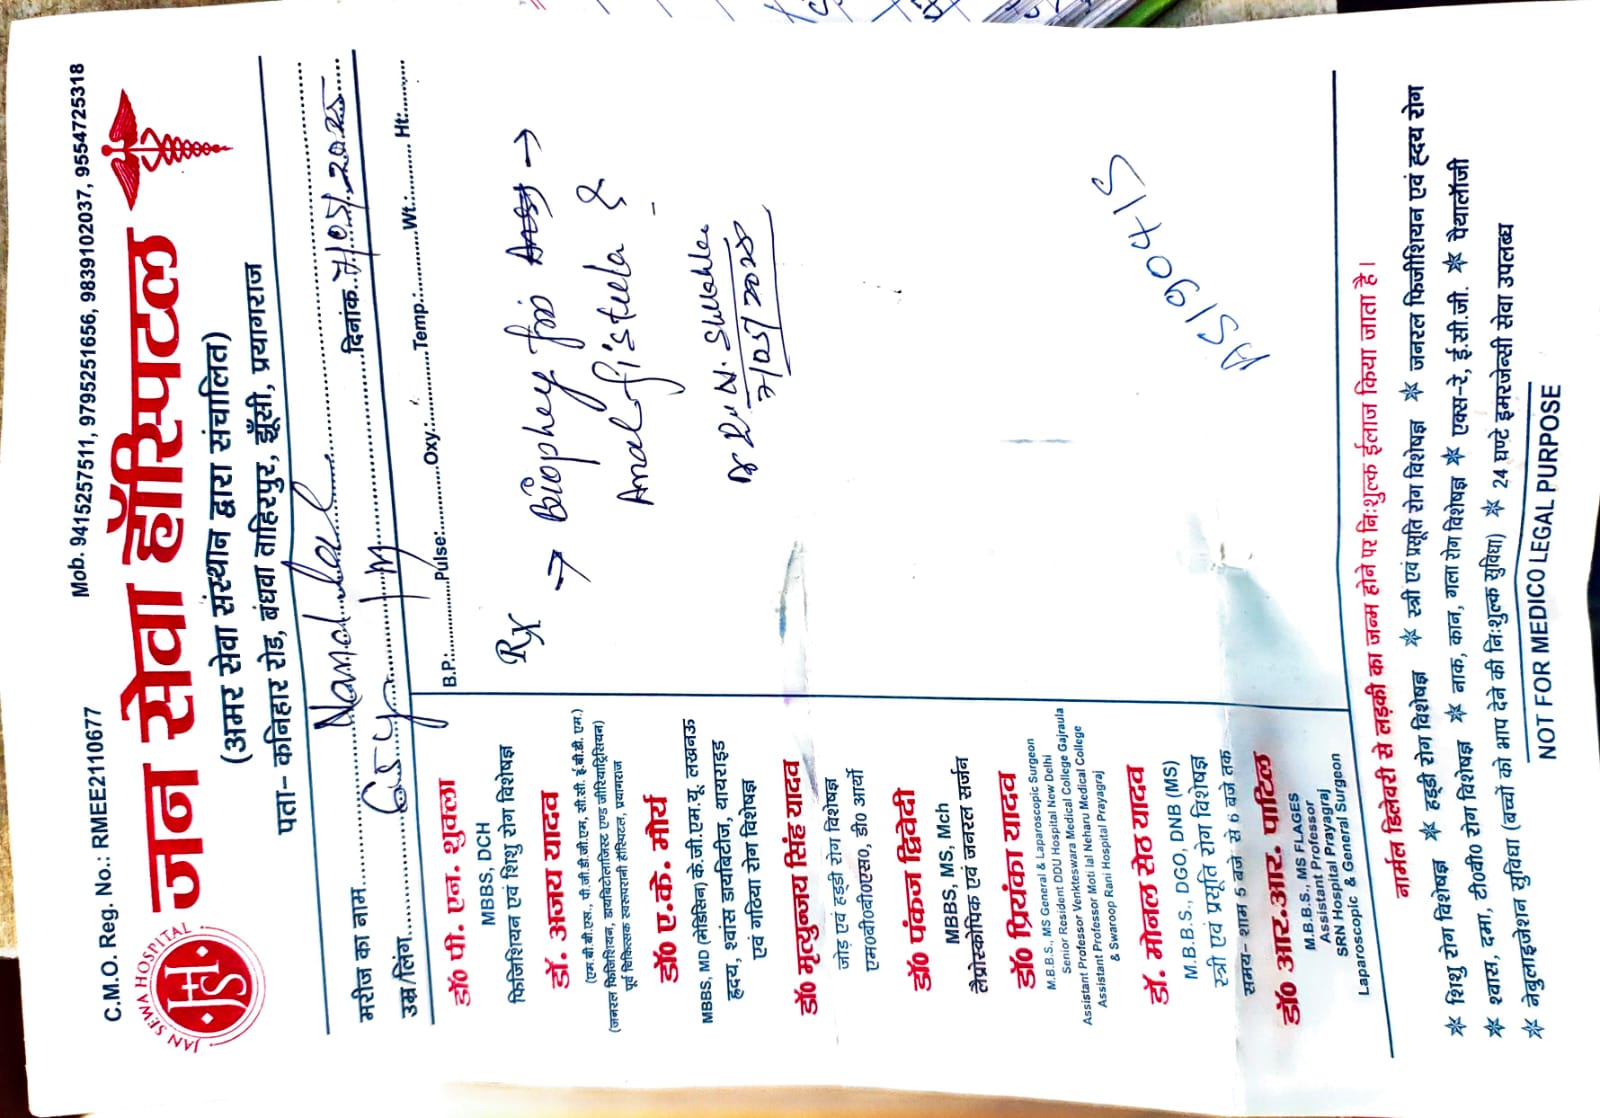 C.M.O. Reg. No.: RMEE2110677
Mob. 9415257511, 9795251656, 9839102037, 9554725318
JAN SEWA HOSPITAL
JSH
जन सेवा हॉस्पिटल
(अमर सेवा संस्थान द्वारा संचालित)
पता- कनिहार रोड, बंधवा ताहिरपुर, झूँसी, प्रयागराज
मरीज का नाम Nand Lal दिनांक 7/05/2025
उम्र/लिंग 65 y / M
B.P.: Pulse: Oxy.: Temp.: Wt.: Ht:
डॉ० पी. एन. शुक्ला
MBBS, DCH
फिजिशियन एवं शिशु रोग विशेषज्ञ
डॉ. अजय यादव
(एम.बी.बी.एस., पी.जी.डी.जी.एम, सी.सी. ई.बी.डी. एम.)
(जनरल फिजिशियन, डायबेटोलाजिस्ट एण्ड जीरियाट्रिसियन)
पूर्व चिकित्सक स्वरूपरानी हॉस्पिटल, प्रयागराज
डॉ० ए.के. मौर्य
MBBS, MD (मेडिसिन) के.जी.एम.यू. लखनऊ
हृदय, श्वांस डायबिटीज, थायराइड
एवं गठिया रोग विशेषज्ञ
डॉ० मृत्युन्जय सिंह यादव
जोड़ एवं हड्डी रोग विशेषज्ञ
एम०बी०बी०एस०, डी० आर्थो
डॉ० पंकज द्विवेदी
MBBS, MS, Mch
लैप्रोस्कोपिक एवं जनरल सर्जन
डॉ० प्रियंका यादव
M.B.B.S., MS General & Laparoscopic Surgeon
Senior Resident DDU Hospital New Delhi
Assistant Professor Venkteswara Medical College Gajraula
Assistant Professor Moti lal Neharu Medical College
& Swaroop Rani Hospital Prayagraj
डॉ. मोनल सेठ यादव
M.B.B.S., DGO, DNB (MS)
स्त्री एवं प्रसूति रोग विशेषज्ञ
समय- शाम 5 बजे से 6 बजे तक
डॉ० आर.आर. पाटिल
M.B.B.S., MS FLAGES
Assistant Professor
SRN Hospital Prayagraj
Laparoscopic & General Surgeon
Rx
→ Biophey for →
Anal fistula
Dr. P. N. Shukla
7/05/2025
AS190415
नार्मल डिलेवरी से लड़की का जन्म होने पर निःशुल्क ईलाज किया जाता है।
✲ शिशु रोग विशेषज्ञ ✲ हड्डी रोग विशेषज्ञ ✲ स्त्री एवं प्रसूति रोग विशेषज्ञ ✲ जनरल फिजीशियन एवं ह्दय रोग
✲ श्वास, दमा, टी०बी० रोग विशेषज्ञ ✲ नाक, कान, गला रोग विशेषज्ञ ✲ एक्स-रे, ई.सी.जी. ✲ पैथालॉजी
✲ नेबुलाइजेशन सुविधा (बच्चों को भाप देने की निःशुल्क सुविधा) ✲ 24 घण्टे इमरजेन्सी सेवा उपलब्ध
NOT FOR MEDICO LEGAL PURPOSE